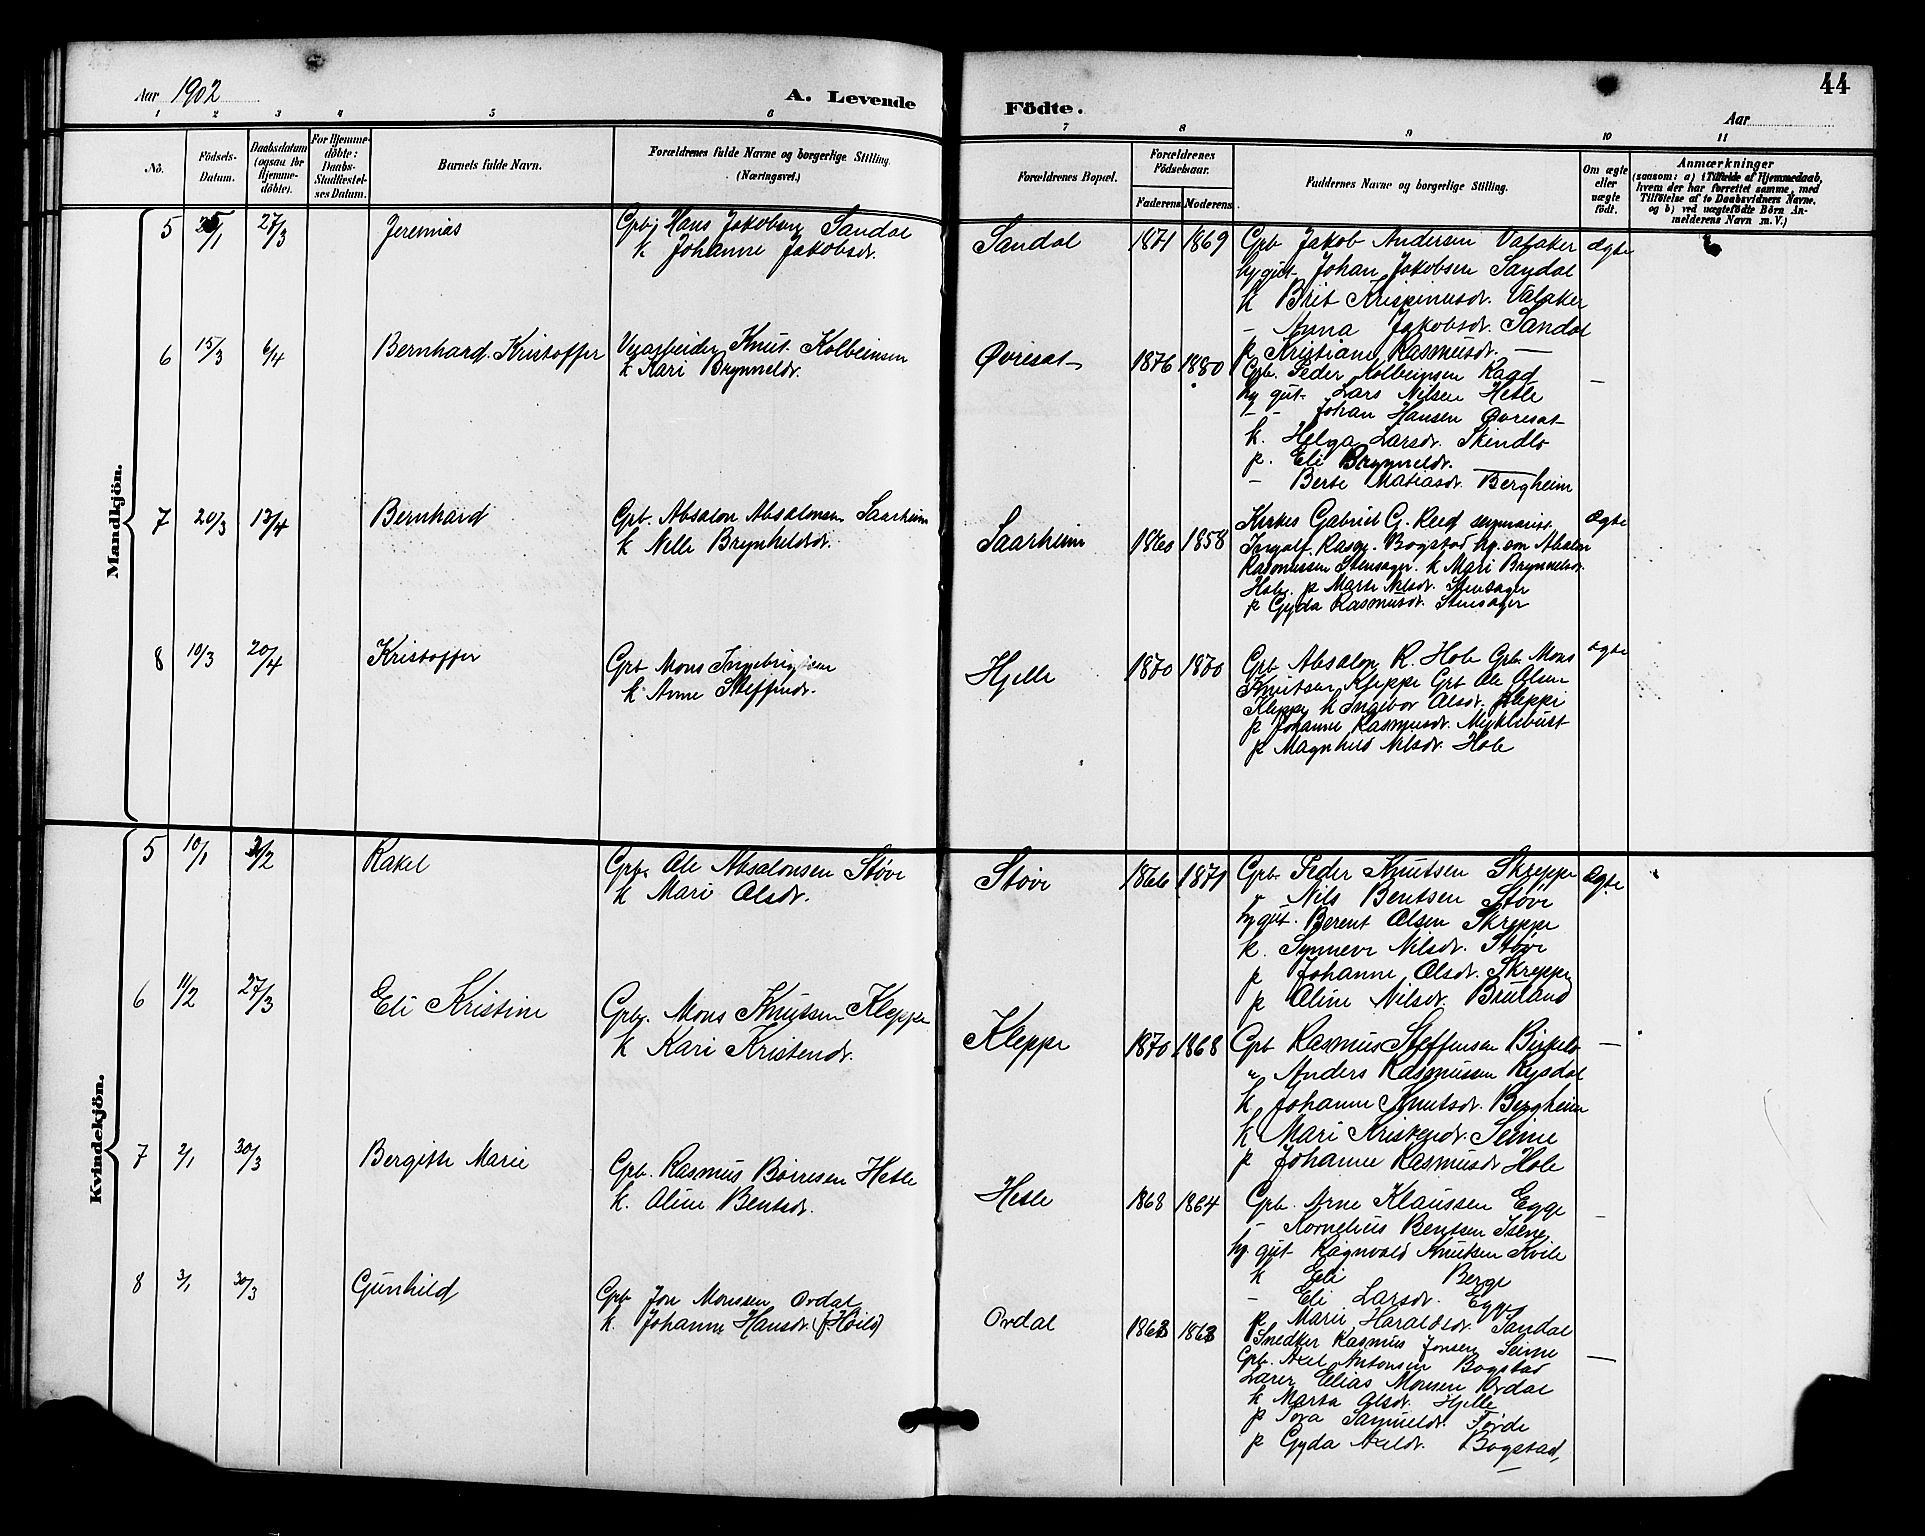 44
Aar 1902
A. Levende
Födte.
Aar
1 2 3 4 5 6 7 8 9 10 11
No.
Födsels-
Datum.
Daabsdatum
(ogsaa for
Hjemme-
döbte).
For Hjemme-
döbte:
Daabs-
Stadfæstel-
ses Datum.
Barnets fulde Navn.
Forældrenes fulde Navne og borgerlige Stilling.
(Næringsvei.)
Forældrenes Bopæl.
Forældrenes
Födselsaar.
Faderens
Moderens
Faddernes Navne og borgerlige Stilling.
Om ægte
eller
uægte
født.
Anmærkninger
(saasom: a) i Tilfælde af Hjemmedaab,
hvem der har forrettet samme, med
Tilföielse af to Daabsvidners Navne,
og b) ved uægtefödte Börn An-
melderens Navn m. V.)
Mandkjön.
5 25/1 27/3 Jeremias
Grbj Hans Jakobsen Sandal
k Johanne Jakobsdr.
Sandal 1871 1869
Grb Jakob Andersen Valaker
hy gut Johan Jakobsen Sandal
k Brit Krispinusdr. Valaker
- Anna Jakobsdr. Sandal
p Kristiane Rasmusdr. —
ægte
6 15/3 6/4 Bernhard Kristoffer
Veiarbeider Knut Kolbeinsen
k Kari Brynneldr.
Øvresat 1876 1880
Grb. Peder Kolbeinsen Raad
hy gut Lars Nilsen Hetle
- - Johan Hansen Øvresat
k. Helga Larsdr. Skindlo
p. Eli Brynneldr.
- Berte Matiasdr. Bergheim
—
7 20/3 13/4 Bernhard
Grb. Absalon Absalonsen Saarheim
k Nille Brynheldsdr.
Saarheim 1860 1858
Kirkes Gabriel G. Reed
Ingolf Rasm. Bogstad hg. son Absalon
Rasmussen Stensager. k Mari Brynneldr.
Hole. p Marte Nilsdr. Stensager
p Gyda Rasmusdr. Stensager
ægte
8 10/3 20/4 Kristoffer
Grb Mons Ingebrigtsen
k Anne Steffendr.
Hjelle 1870 1870
Grb Absalon R. Hole Grb. Mons
Knutsen Kleppe Grb Ole Olsen
Kleppe k Ingebor Olsdr. Kleppe
p Johanne Rasmusdr. Myklebust
p Magnhild Nilsdr. Hole
ægte
Kvindekjön.
5 10/1 2/2 Rakel
Grb. Ole Absalonsen Støve
k Mari Olsdr.
Støve 1866 1871
Grb. Peder Knutsen Skreppe
" Nils Bentsen Støve
hy gut. Berent Olsen Skreppe
k. Synneve Nilsdr. Støve
p Johanne Olsdr. Skreppe
p Oline Nilsdr. Bruland
ægte
6 11/2 27/3 Eli Kristine
Grbj. Mons Knutsen Kleppe
k Kari Kristendr.
Kleppe 1870 1868
Grb Rasmus Steffensen Birkelo
" Anders Rasmussen Rysdal
k Johanne Knutsdr. Bergheim
k Mari Kristendr. Seime
p Johanne Rasmusdr Hole
—
7 2/1 30/3 Bergitte Marie
Grb. Rasmus Børresen Hetle
k. Oline Bentsdr.
Hetle 1868 1864
Grb. Arne Klaussen Egge
j - Kornelius Bentsen Isene
hy. gut Ragnvald Knutsen Kvile
k Eli Berge
- Eli Larsdr. Egge
p Marie Haraldsdr. Sandal
—
8 3/1 30/3 Gunhild
Grb Jon Monssen Ordal
k. Johanne Hansdr. (f. Høilo)
Ordal 1863 1863
Snedker Rasmus Jonsen Seime
Grb. Axel Antonsen Bogstad
Lærer Elias Monsen Ordal
k Marta Olsdr. Hjelle
p Tora Samueldr. Førde
p Gyda Axeldr. Bogstad,
—